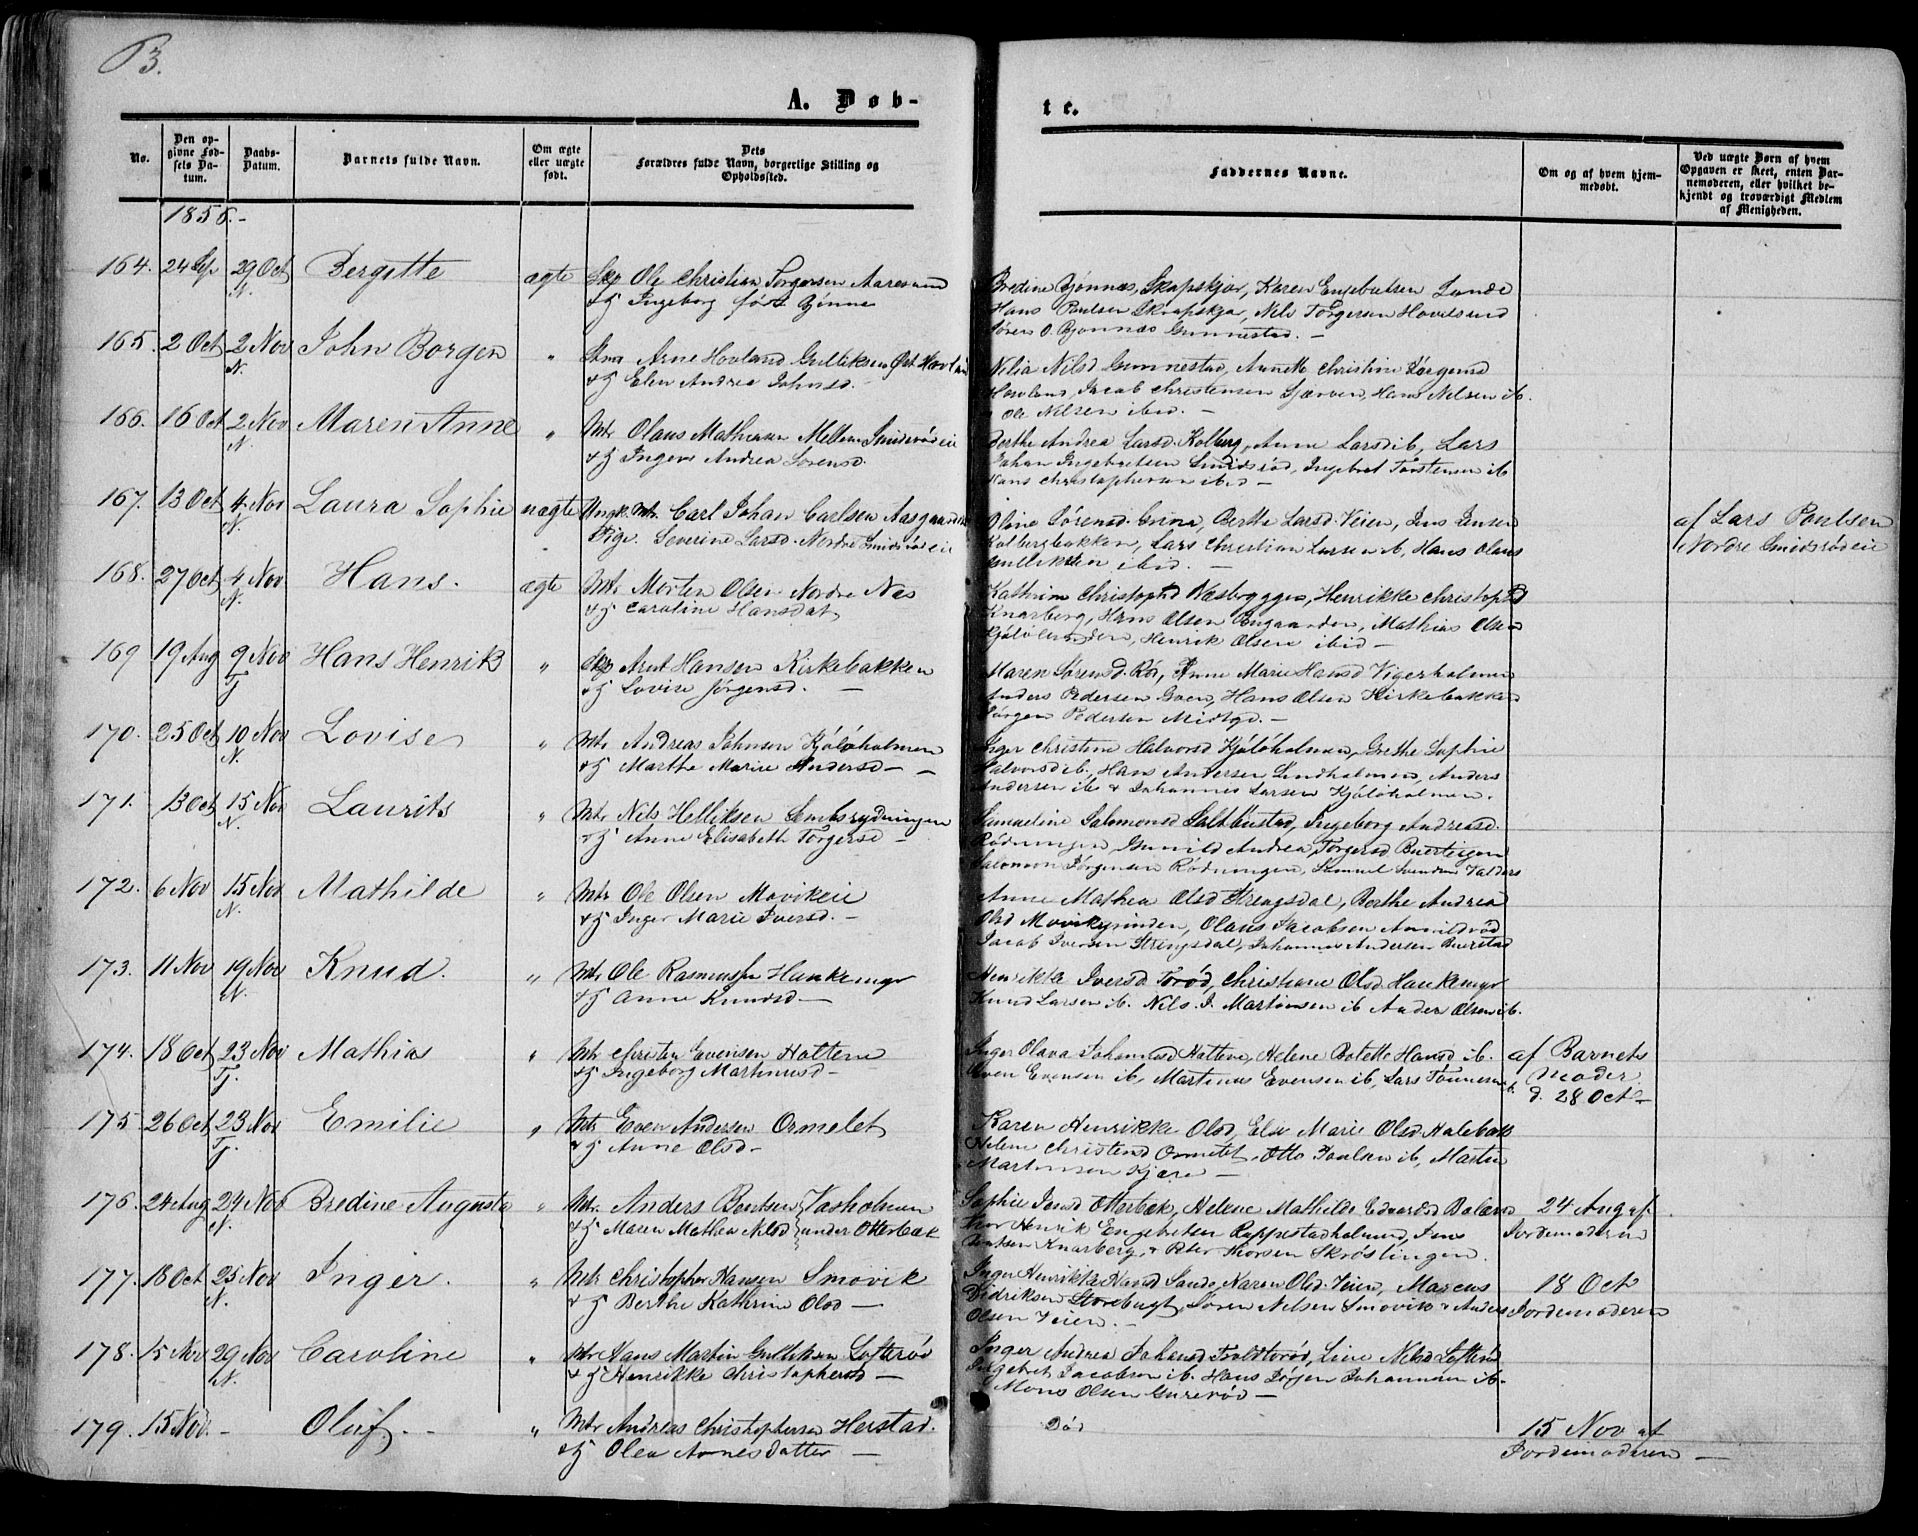 B.
A. Døb-
te.
No.
Den op-
givne Fød-
sels Da-
tum.
Daabs-
Datum.
Barnets fulde Navn.
Om ægte
eller uægte
født.
Dets
Forældres fulde Navn, borgerlige Stilling og
Opholdssted.
Faddernes Navne.
Om og af hvem hjem-
medøbt.
Ved uægte Børn af hvem
Opgaven er skeet, enten Bar-
nemoderen, eller hvilket be-
kjendt og troværdigt Medlem
af Menigheden.
1855.-
164. 24 Sep 29 Oct Bergitte ægte Ole Christian Torgersen
N.
& H Ingeborg
Bredine Gjønnes, Skapskjær, Karen Engebretsen Lunde
Hans Paulsen Skapskjær, Nils Torgersen
Søren O. Gjønnes Gunnestad. -
165. 2 Oct 2 Nov John Borgen " Arne Hovland Gulliksen Øst Hovland
N.
& H Elen Andrea Johnsd. -
Nilia Nilsd Gunnestad, Annette Christine
Hovland, Jacob Christensen, Hans Nilsen ib.
Ole Nilsen ibid. -
166. 16 Oct 2 Nov Maren Anne " Mtr Olaus Mathiasen Mellem Smidsrødeie
N.
& H Inger Andrea Sørensd.
Berthe Andrea Larsd. Kolberg, Anne Larsd ib, Lars
Johan Ingebretsen Smidsrød, Ingebret Torstensen ib
Hans Christophersen ibid -
167. 13 Oct 4 Nov Laura Sophie uægte Ungk. Mtr. Carl Johan Carlsen Aasgaarden
N.
Pige. Severine Larsd. Nordre Smidsrødeie
Oline Sørensd. Grina, Berthe Larsd. Veien, Jens Jensen
Kolbergbakken, Lars Christian Larsen ib, Hans Olaus
Gulliksen ibid. -
af Lars Poulsen
Nordre Smidsrødeie
168. 27 Oct 4 Nov Hans. ægte Mtr Morten Olsen Nordre Nes
N.
& H Caroline Hansdat
Kathrine Christophd, Henrikke Christophd
Knarberg, Hans Olsen, Mathias Olsen
Henrik Olsen ibid -
169 19 Aug 9 Nov Hans Henrik " Arnt Hansen Kirkebakken
Tj
& H Lovise Jørgensd. -
Maren Sørensd. Røi, Anne Marie Hansd Vigerholmen
Anders Pedersen, Hans Olsen Kirkebakken
Jørgen Pedersen Midtgd. -
170. 25 Oct 10 Nov Lovise " Mtr Andreas Johnsen Kjøløholmen
N.
& H Marthe Marie Andersd - -
Inger Christine Halvorsd Kjøløholmen, Grethe Sophie
Halvorsd ib., Hans Andersen Lindholmen, Anders
Andersen ib & Johannes Larsen Kjøløholmen.
171. 13 Oct 15 Nov Laurits " Mtr Nils Helliksen Sembsrydningen
N.
& H Anne Elisabeth Torgersd -
Samueline Salomonsd Saltbustad, Ingeborg Andreasd.
Rødningen, Gunild Andrea Torgersd
Salomon Jørgensen Rødningen, Samuel Svendsen
172. 6 Nov 15 Nov Mathilde " Mtr Ole Olsen Movikeie
N.
& H Inger Marie Iversd. -
Anne Mathea Olsd Strengsdal, Berthe Andrea
Olsd, Olaus Jacobsen
Jacob Iversen Strengsdal, Johannes Andersen Buerstad
173. 11 Nov 19 Nov Knud. " Mtr Ole Rasmussen Haukemyr
N.
& H Anne Knudsd -
Henrikke Iversd Torød, Christiane Olsd. Haukemyr
Knud Larsen ib. Nils J. Martinsen ib Ander Olsen ib.
174. 18 Oct 23 Nov Mathias " Mtr Christen Evensen Holtene
Tj.
& H Ingeborg Martinusd -
Inger Olava Johannesd, Helene Bolette Hansd ib.
Even Evensen ib, Martinus Evensen ib, Lars Tønnesen ib.
af Barnets
Moder
d. 28 Oct -
175. 26 Oct 23 Nov Emilie " Mtr Even Andersen Ormelet
Tj.
& H Anne Olsd -
Karen Henrikke Olsd, Else Marie Olsd. Holebak
Helene Christensd Ormelet, Otto Poulsen ib, Martin
Martinsen Kjære -
176. 24 Aug 24 Nov Bredine Augusta " Mtr. Anders Berntsen Vasholmen
N.
& H Maren Mathea Nilsd under Otterbæk
Sophie Jensd Otterbæk, Helene Mathilde Edvardsd Bolærne
Thor Henrik Engebretsen, Jens
Berntsen Knarberg, & Peter Thorsen Skrøslingen.
24 Aug af
Jordemoderen
177. 18 Oct 25 Nov Inger. " Mtr Christopher Hansen Smovik
N.
& H Berthe Kathrine Olsd -
Inger Henrikke Hansd Sande, Karen Olsd. Veien, Marcus
Didriksen Storebugt, Søren Nilsen Smovik & Anders
Olsen Veien. -
18 Oct
Jordemoderen
178. 15 Nov 29 Nov Caroline " Mtr Hans Martin Gulliksen Lofterød
N.
& H Henrikke Christophersd -
Inger Andrea Johansd, Line Nilsd Lofterød
Ingebret Jacobsen ib. Hans Jørgen Johannesen ib.
Mons Olsen -
179. 15 Nov. - Oluf. - " Mtr Andreas Christophersen Herstad.
& H Olea Arnesdatter -
Død
15 Nov af
Jordemoderen -